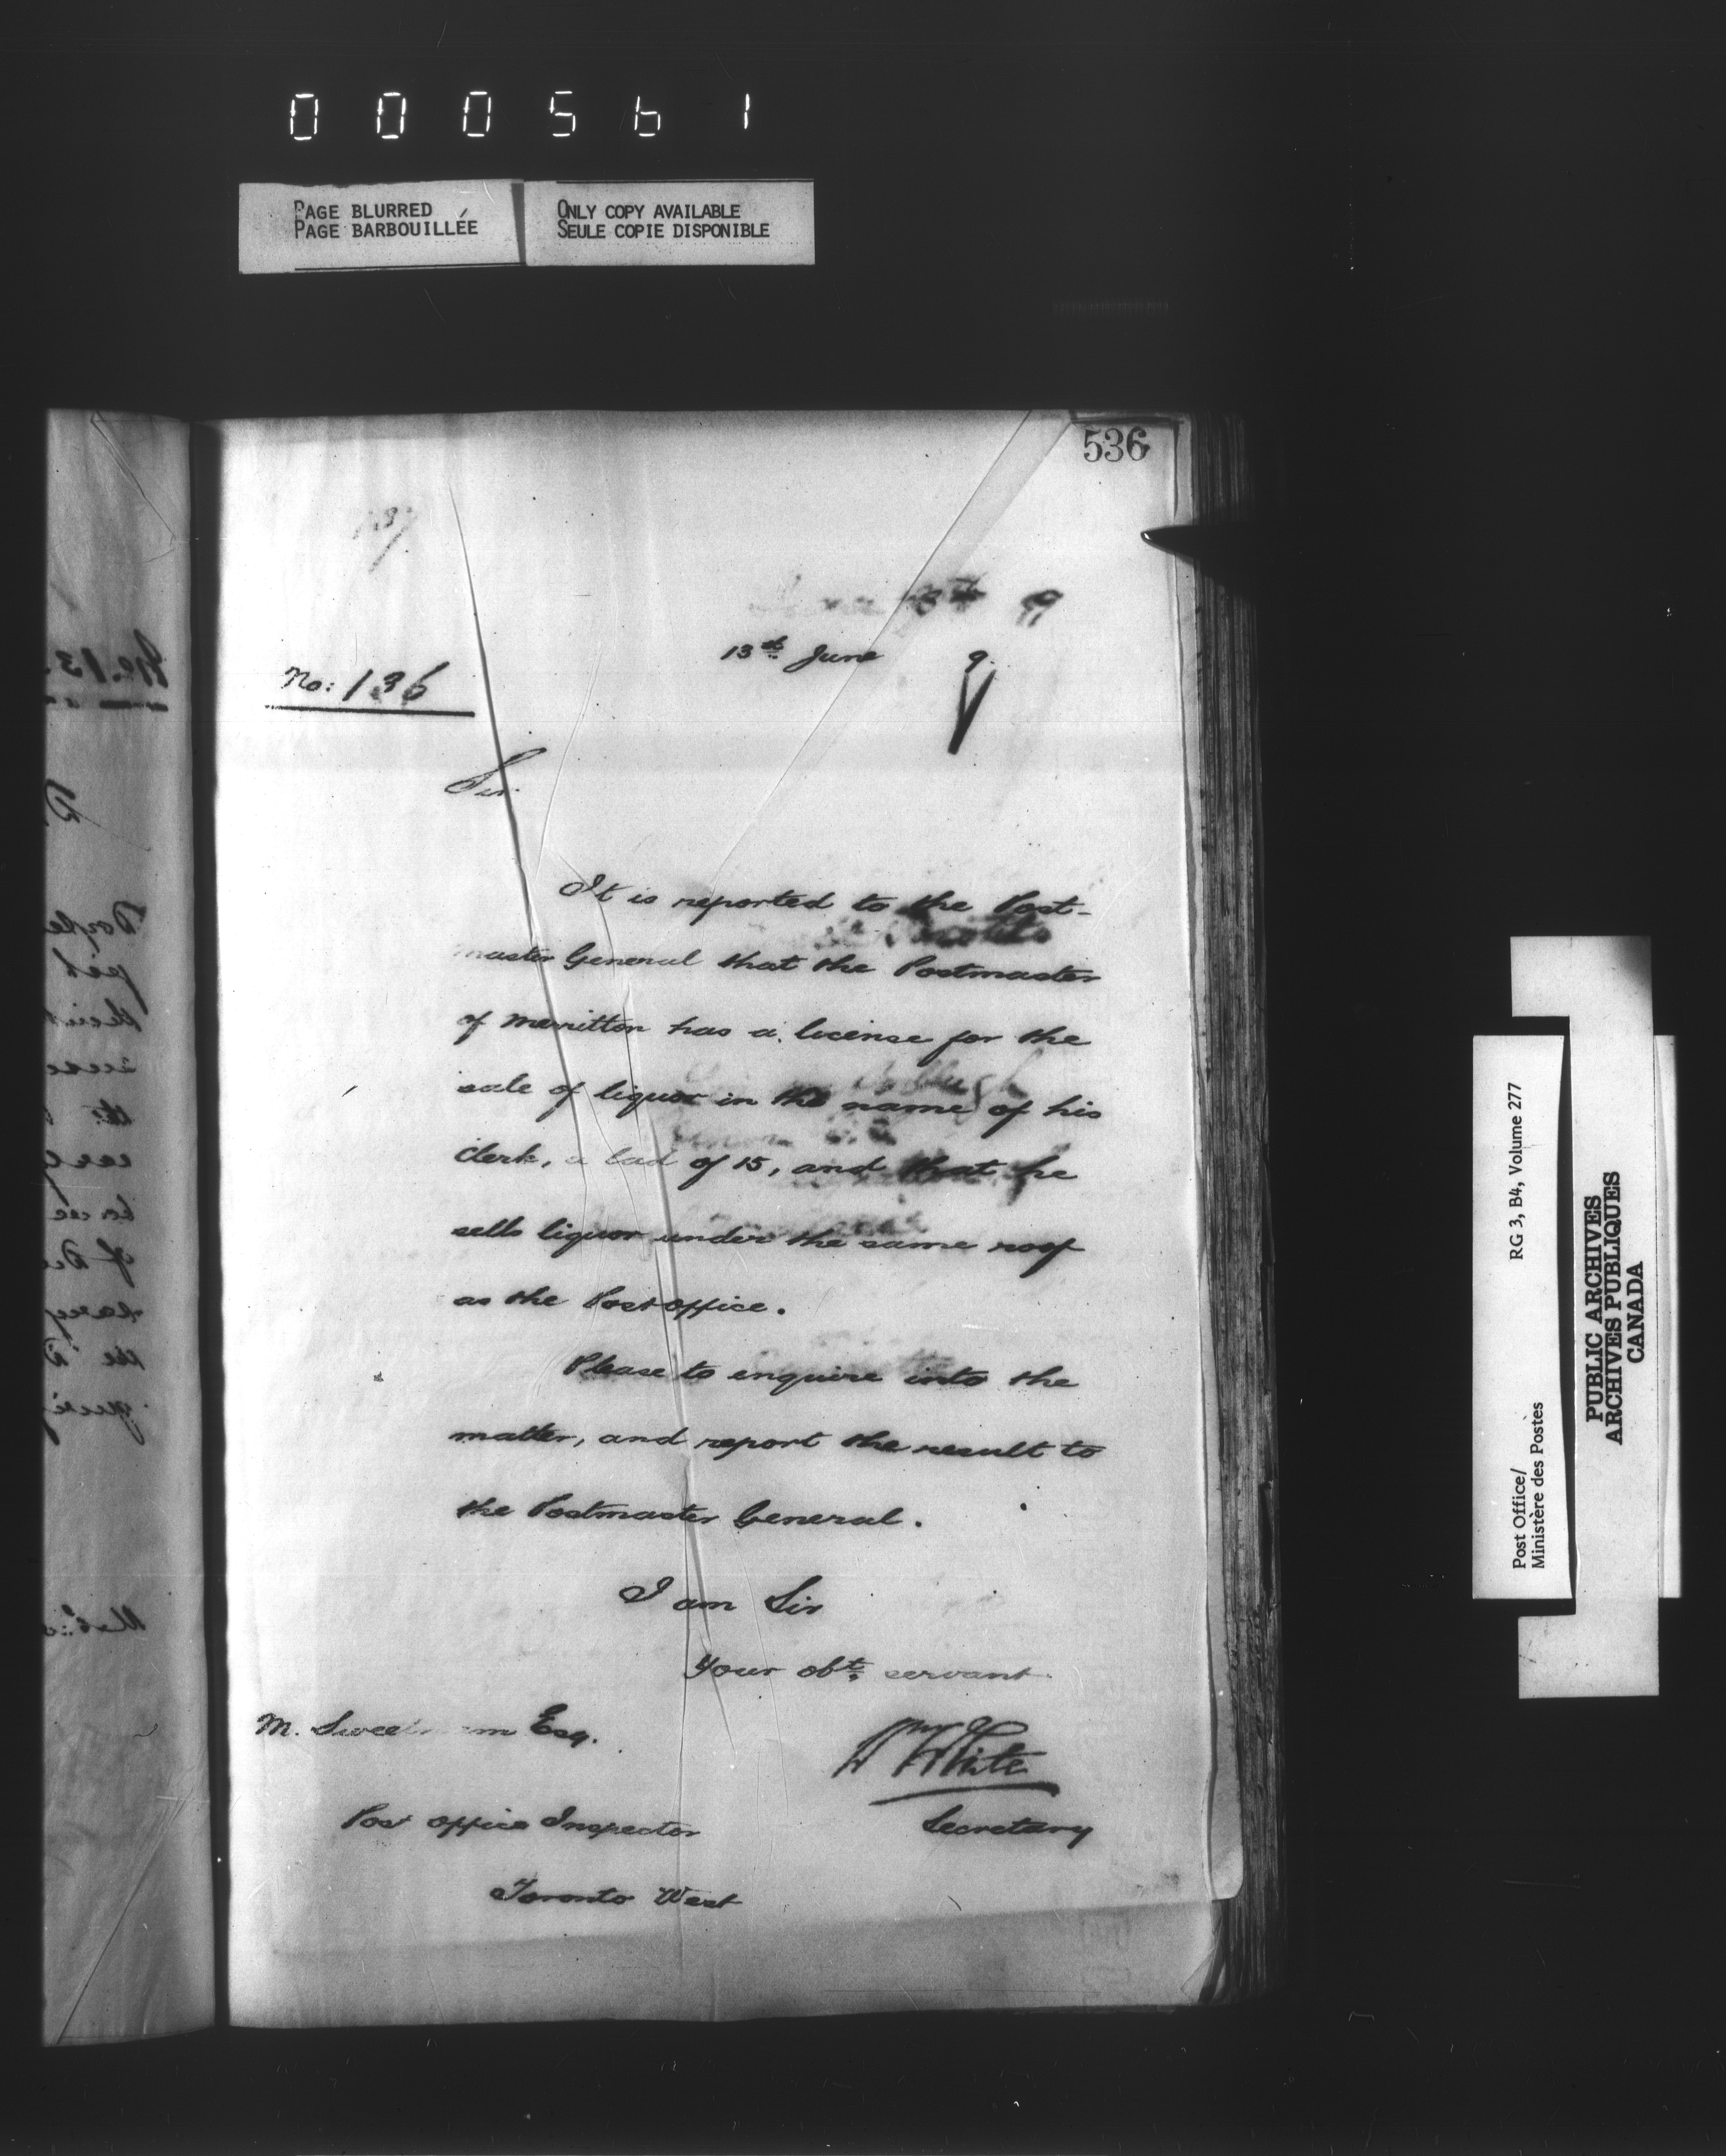 000561
PAGE BLURRED
PAGE BARBOUILLÉE
ONLY COPY AVAILABLE
SEULE COPIE DISPONIBLE
536
13th June 9.
No: 136
Sir.
It is reported to the Post-
master General that the Postmaster
of Merritton has a license for the
sale of liquor in the name of his
Clerk, a lad of 15, and that he
sells liquor under the same roof
as the Post office.
Please to enquire into the
matter, and report the result to
the Postmaster General.
I am Sir
Your obt. servant
M. Esq.
Wm White
Post office Inspector
Secretary
Toronto West
Post Office/
Ministère des Postes
RG 3, B4, Volume 277
PUBLIC ARCHIVES
ARCHIVES PUBLIQUES
CANADA